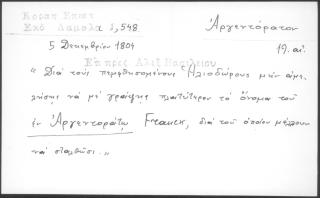 Κοραη Επιστ
Εκδ Δαμαλα 1,548
Ἀργεντόρατον
5 Δεκεμβρίου 1804
19. αἰ.
Ἐπιπρος Ἀλεξ Βασιλειου
"Διὰ τοὺς Ἡλιοδώρους μὴν ἀμε-
λήσῃς νὰ μὲ γράψῃς πλατύτερον τὸ ὄνομα τοῦ
ἐν Ἀργεντοράτῳ Franck, διὰ τοῦ ὁποίου μέλλουν
νὰ σταλθῶσι."